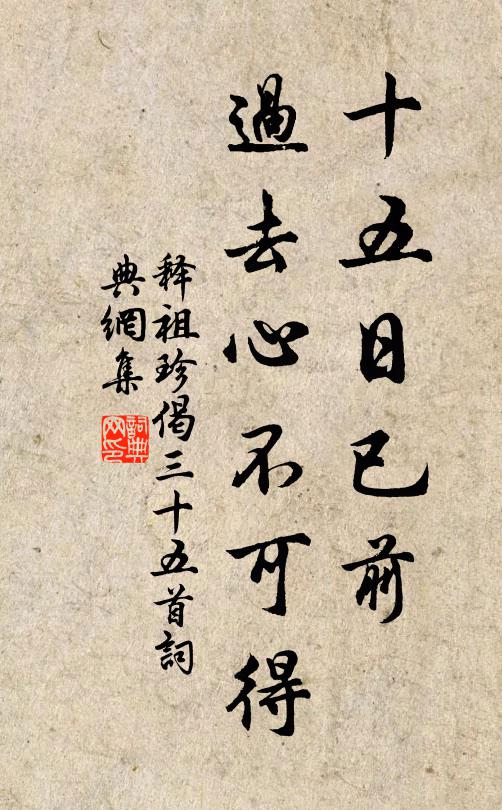 十五日已前
過去心不可得
释祖珍偈三十五首詞
典網集
詞典網印